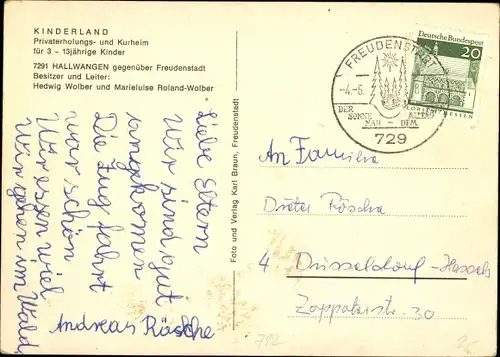 KINDERLAND
Privaterholungs- und Kurheim
für 3 - 13jährige Kinder
7291 HALLWANGEN gegenüber Freudenstadt
Besitzer und Leiter:
Hedwig Wolber und Marieluise Roland-Wolber
Liebe Eltern
Wir sind gut
angekomen
Die Zug fahrt
war schön
Wir essen viel
Wir gehen im Wald
Andreas Räsche
Foto und Verlag Karl Braun, Freudenstadt
FREUDENSTADT
-4.-6.
DER SONNE NAH - DEM ALLTAG
729
Deutsche Bundespost
20
LORSCH/HESSEN
An Familie
Dieter Räsche
4 Düsseldorf-Hassels
Zoppoterstr. 30
752
2,-